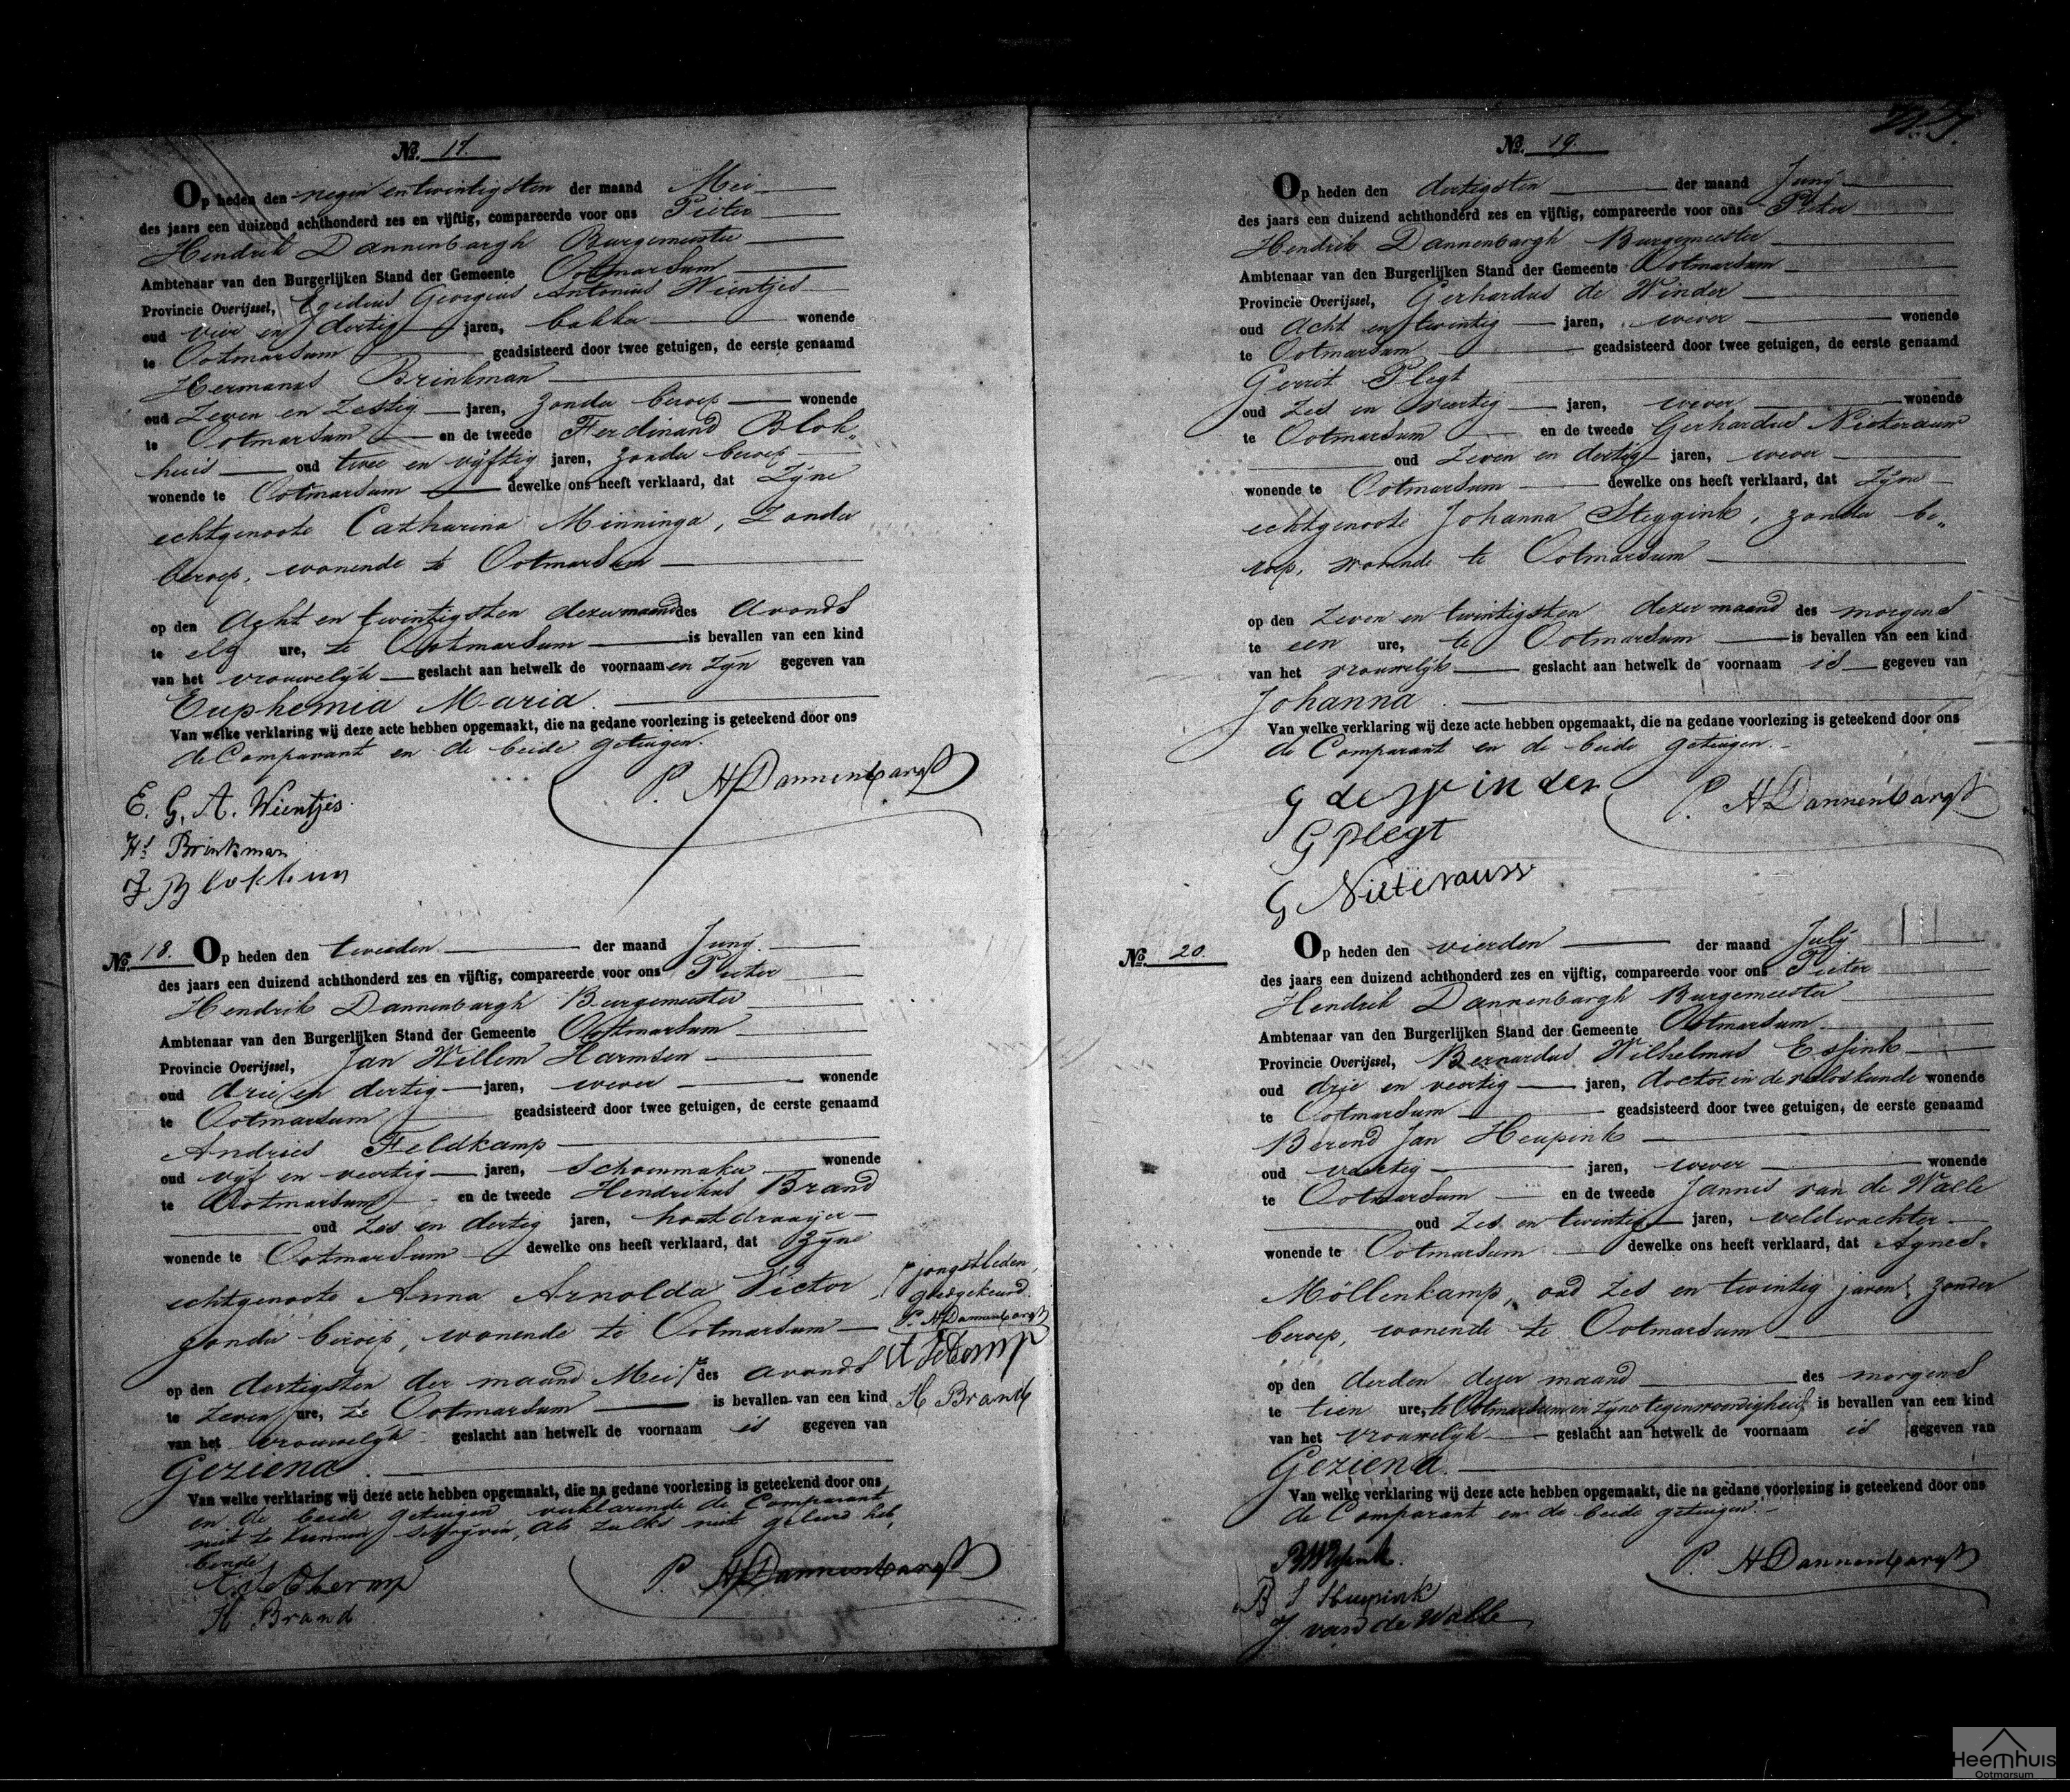 No. 17.
Op heden den negen en twintigsten der maand Mei
des jaars een duizend achthonderd zes en vijftig, compareerde voor ons Pieter
Hendrik Dannenbargh Burgemeester
Ambtenaar van den Burgerlijken Stand der Gemeente Ootmarsum
Provincie Overijssel, Egidius Georgius Antonius Wientjes
oud vier en dertig jaren, bakker wonende
te Ootmarsum geadsisteerd door twee getuigen, de eerste genaamd
Hermanus Brinkman
oud Zeven en Zestig jaren, zonder beroep wonende
te Ootmarsum en de tweede Ferdinand Blok„
huis oud twee en vyftig jaren, zonder beroep
wonende te Ootmarsum dewelke ons heeft verklaard, dat Zyne
echtgenoote Catharina Minninga, Zonder
beroep, wonende te Ootmarsum
op den Acht en twintigsten dezer maand des avonds
te elf ure, te Ootmarsum is bevallen van een kind
van het vrouwelyk geslacht aan hetwelk de voornaamen zyn gegeven van
Euphemia Maria.
Van welke verklaring wij deze acte hebben opgemaakt, die na gedane voorlezing is geteekend door ons
de Comparant en de beide getuigen.
P. H Dannenbargh
E. G. A. Wientjes.
Hs Brinkman
F Blokhuis
No. 18. Op heden den tweeden der maand Juny.
des jaars een duizend achthonderd zes en vijftig, compareerde voor ons Pieter
Hendrik Dannenbargh Burgemeester
Ambtenaar van den Burgerlijken Stand der Gemeente Ootmarsum
Provincie Overijssel, Jan Willem Harmsen
oud drie en dertig jaren, wever wonende
te Ootmarsum geadsisteerd door twee getuigen, de eerste genaamd
Andries Feldkamp
oud vijf en veertig jaren, Schoenmaker wonende
te Ootmarsum en de tweede Hendrikus Brand
oud zes en dertig jaren, houtdraayer
wonende te Ootmarsum dewelke ons heeft verklaard, dat Zyne
echtgenoote Anna Arnolda Victor,
zonder beroep, wonende te Ootmarsum
op den dertigsten der maand Mei des avonds
te Zeven ure, te Ootmarsum is bevallen van een kind
van het vrouwelyk geslacht aan hetwelk de voornaam is gegeven van
Geziena.
Van welke verklaring wij deze acte hebben opgemaakt, die na gedane voorlezing is geteekend door ons
en de beide getuigen verklarende de Comparant
niet te kunnen schryven, als zulks niet geleerd heb„
bende
P. H Dannenbargh
H Brand
jongstleden,
goedgekeurd.
P. H Dannenbargh
H Brand
No. 19.
Op heden den dertigsten der maand Juny
des jaars een duizend achthonderd zes en vijftig, compareerde voor ons Pieter
Hendrik Dannenbargh Burgemeester
Ambtenaar van den Burgerlijken Stand der Gemeente Ootmarsum
Provincie Overijssel, Gerhardus de Winder
oud Acht en twintig jaren, wever wonende
te Ootmarsum geadsisteerd door twee getuigen, de eerste genaamd
Gerrit Plegt
oud Zes en veertig jaren, wever wonende
te Ootmarsum en de tweede Gerhardus
oud Zeven en dertig jaren, wever
wonende te Ootmarsum dewelke ons heeft verklaard, dat Zyne
echtgenoote Johanna Steggink, zonder be„
roep, wonende te Ootmarsum
op den Zeven en twintigsten dezer maand des morgens
te een ure, te Ootmarsum is bevallen van een kind
van het vrouwelyk geslacht aan hetwelk de voornaam is gegeven van
Johanna.
Van welke verklaring wij deze acte hebben opgemaakt, die na gedane voorlezing is geteekend door ons
de Comparant en de beide getuigen.
G de Winder
P. H Dannenbargh
G Plegt
G
No. 20.
Op heden den vierden der maand July
des jaars een duizend achthonderd zes en vijftig, compareerde voor ons Pieter
Hendrik Dannenbargh Burgemeester
Ambtenaar van den Burgerlijken Stand der Gemeente Ootmarsum.
Provincie Overijssel, Bernardus Wilhelmus Essink
oud drie en veertig jaren, doctor in de verloskunde wonende
te Ootmarsum geadsisteerd door twee getuigen, de eerste genaamd
Berend Jan Heupink
oud veertig jaren, wever wonende
te Ootmarsum en de tweede Jannes van de Walle
oud Zes en twintig jaren, veldwachter
wonende te Ootmarsum dewelke ons heeft verklaard, dat Agnes
Möllenkamp, oud zes en twintig jaren, zonder
beroep, wonende te Ootmarsum
op den derden dezer maand des morgens
te tien ure, te Ootmarsum in zyne tegenwoordigheid is bevallen van een kind
van het vrouwelyk geslacht aan hetwelk de voornaam is gegeven van
Geziena.
Van welke verklaring wij deze acte hebben opgemaakt, die na gedane voorlezing is geteekend door ons
de Comparant en de beide getuigen.
P. H Dannenbargh
Heupink
J van de Walle
Heemhuis
Ootmarsum